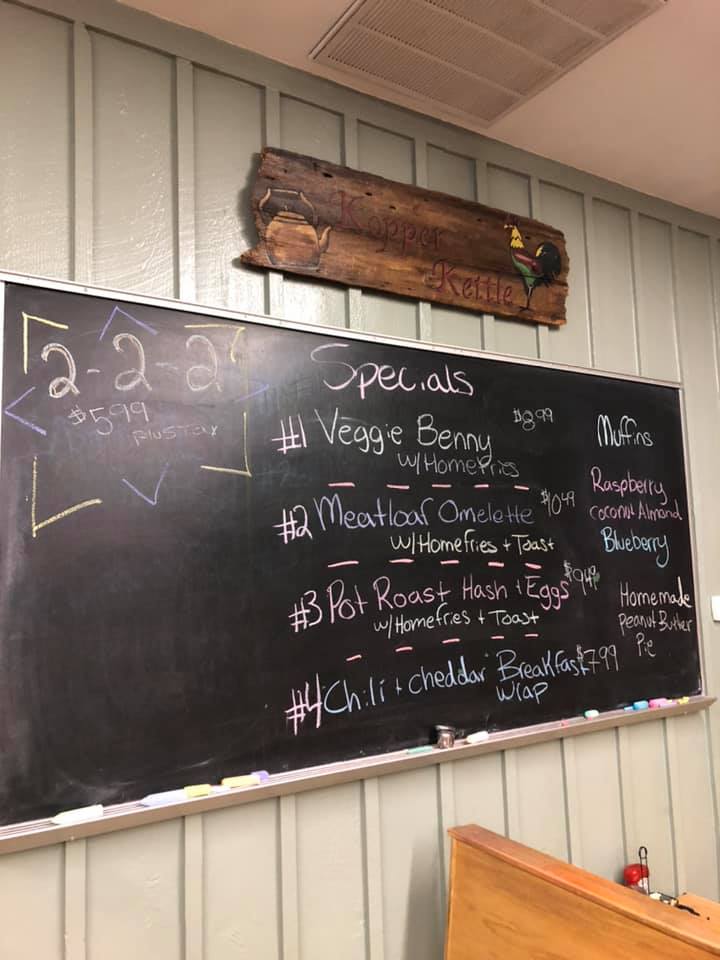 Kopper
Kettle
2-2-2
$599
plus Tax
Specials
#1 Veggie Benny $8.99
w/Homefries
#2 Meatloaf Omelette $1049
w/Homefries + Toast
#3 Pot Roast Hash + Eggs $949
w/Homefries + Toast
#4 Chili + cheddar Breakfast $799
wrap
Muffins
Raspberry
coconut Almond
Blueberry
Homemade
peanut Butter
Pie